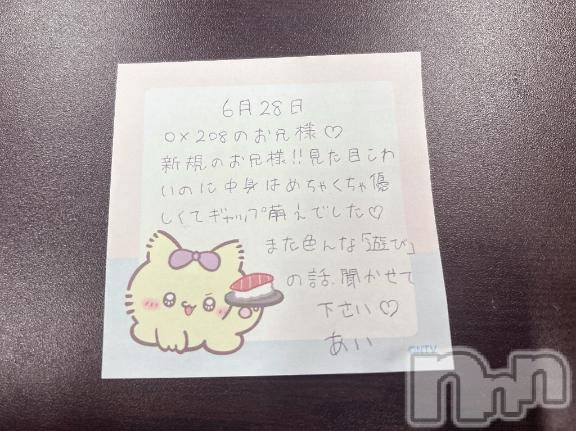 6月28日
0×208のお兄様♡
新規のお兄様!!見た目こわ
いのに中身はめちゃくちゃ優
しくてギャップ萌えでした♡
また色んな「遊び」
の話、聞かせて
下さい♡
あい
©NTV
nnn